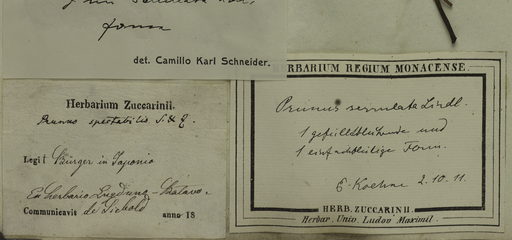 forma
det. Camillo Karl Schneider.
Herbarium Zuccarinii.
Prunus spectabilis S. & Z
Legit Bürger in Japonia
Ex herbario Lugduno-Batavo.
Communicavit de Siebold anno 18
HERBARIUM REGIUM MONACENSE.
Prunus serrulata Lindl.
1 gefülltblühende und
1 einfachblütige Form.
E. Koehne 2.10.11.
HERB. ZUCCARINII.
Herbar. Univ. Ludov. Maximil.